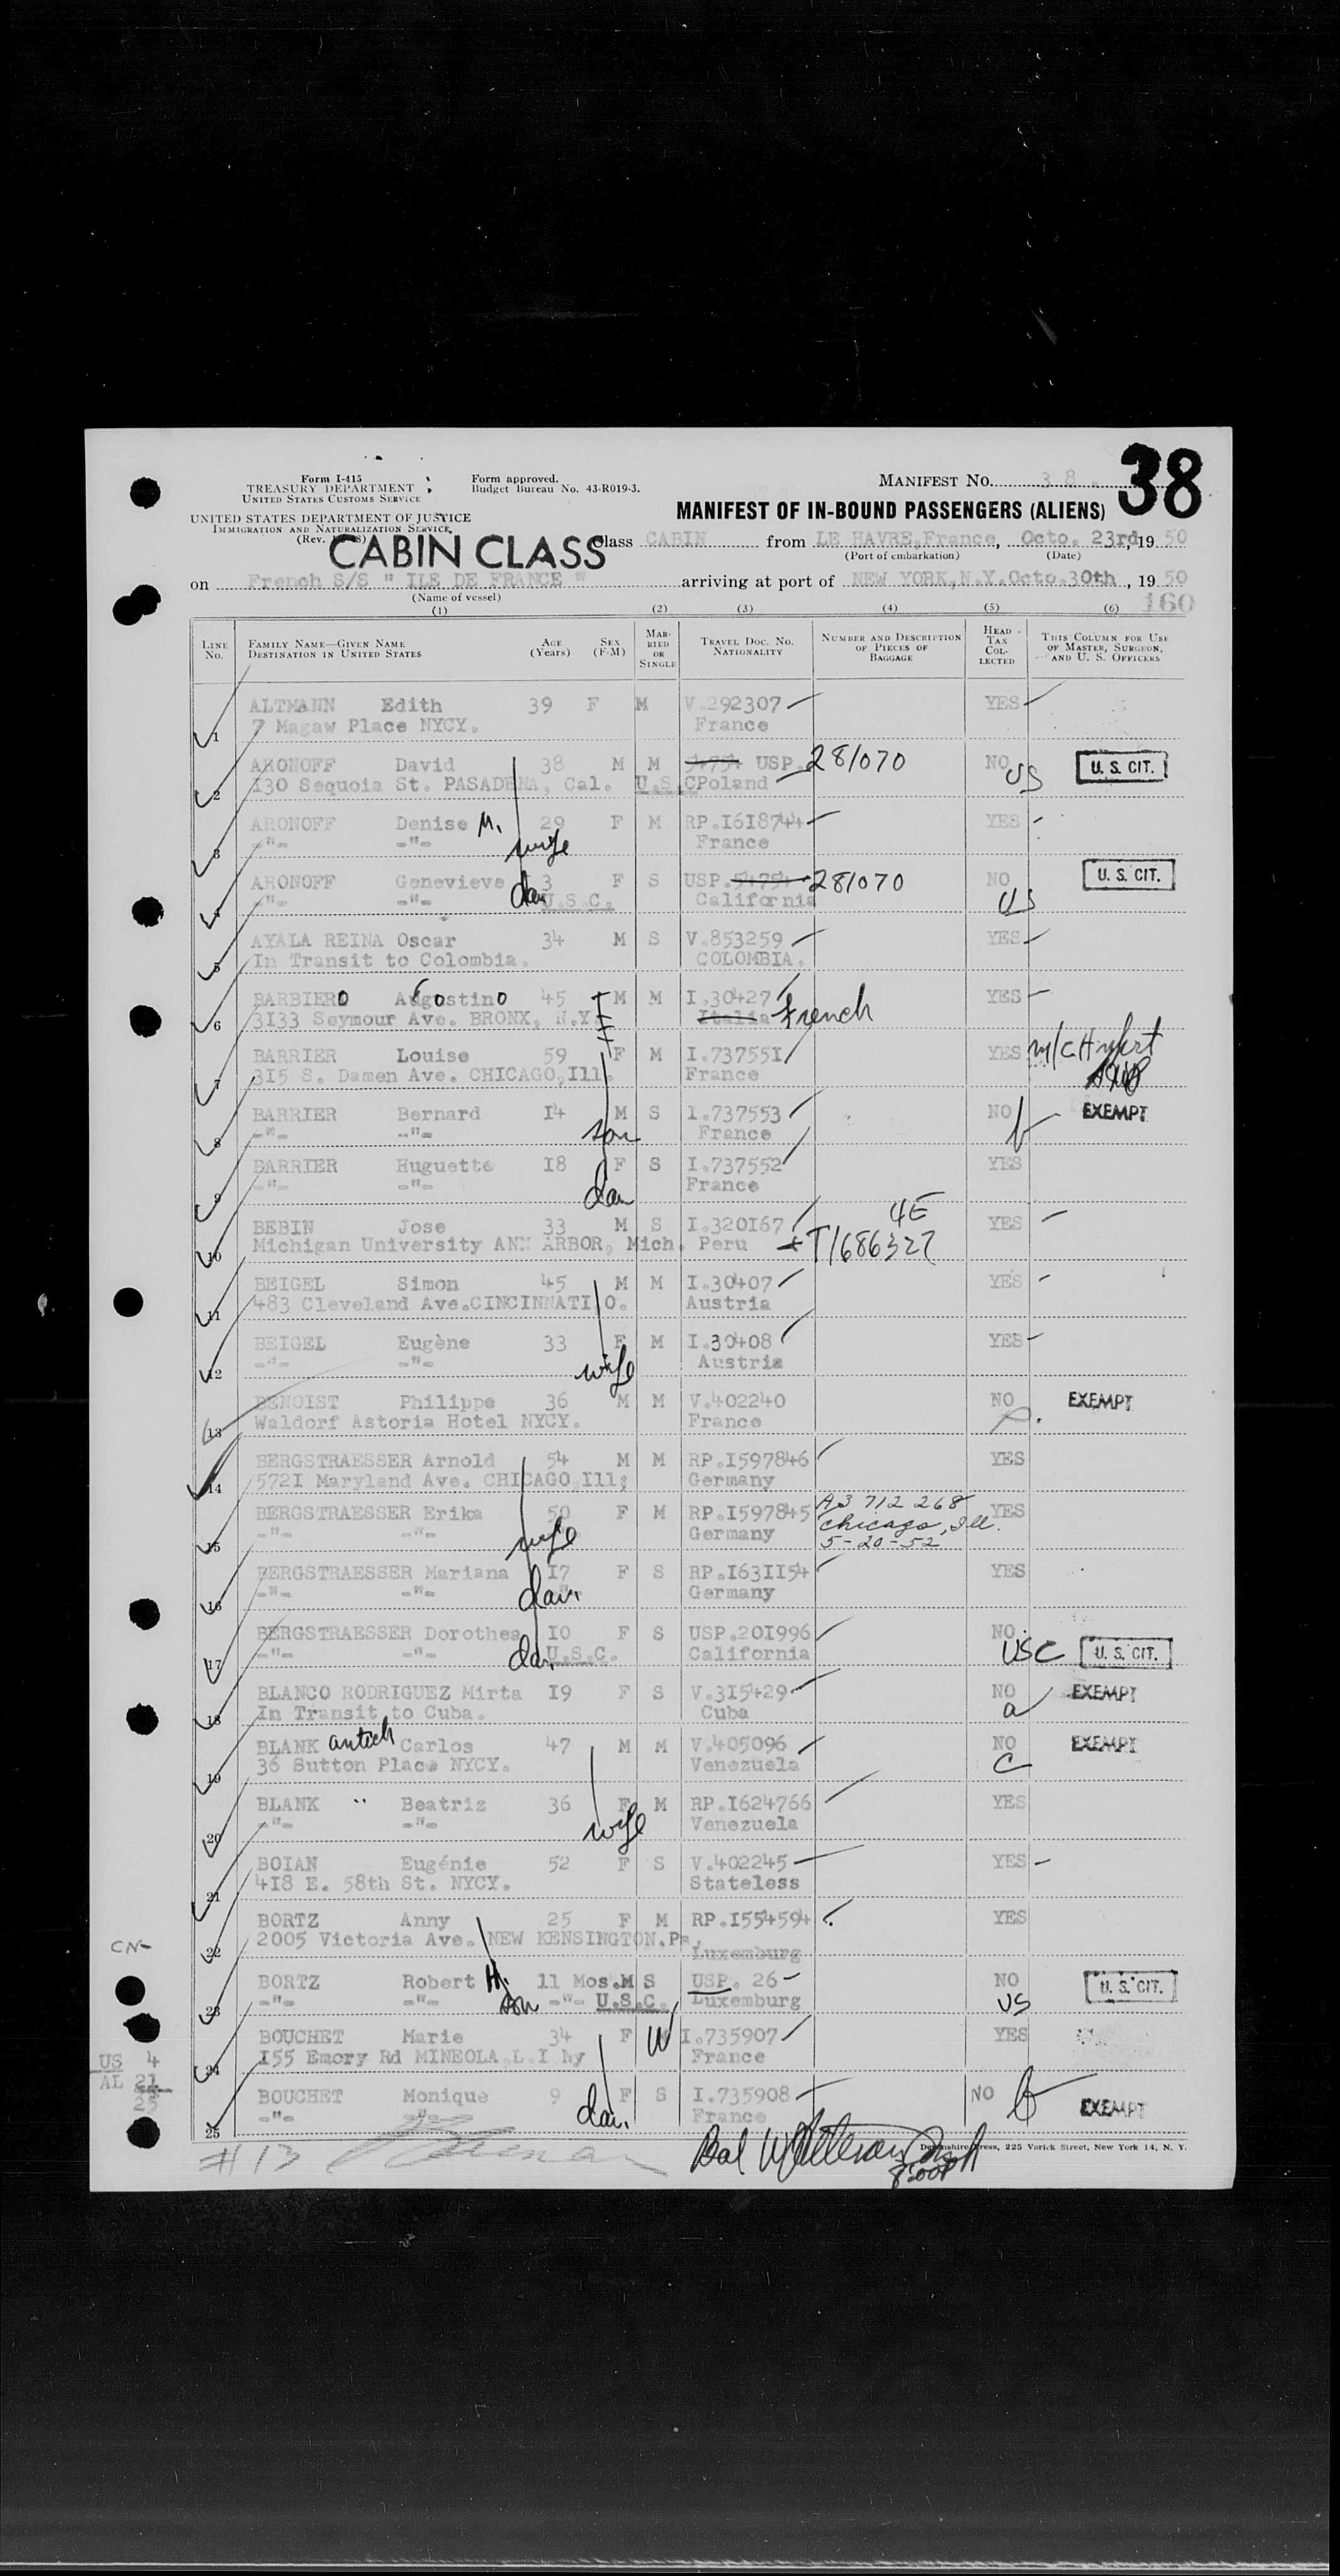 38
Form I-415
TREASURY DEPARTMENT
UNITED STATES CUSTOMS SERVICE
Form approved.
Budget Bureau No. 43-R019-3.
MANIFEST No. 38
UNITED STATES DEPARTMENT OF JUSTICE
IMMIGRATION AND NATURALIZATION SERVICE
(Rev.
MANIFEST OF IN-BOUND PASSENGERS (ALIENS)
CABIN CLASS
Class CABIN from LE HAVRE,France, Octo. 23rd, 19 50
(Port of embarkation) (Date)
on French S/S " ILE DE FRANCE " arriving at port of NEW YORK,N.Y.Octo.30th, 19 50
(Name of vessel)
(1) (2) (3) (4) (5) (6) 160
LINE No. FAMILY NAME—GIVEN NAME DESTINATION IN UNITED STATES AGE (Years) SEX (F-M) MARRIED OR SINGLE TRAVEL DOC. No. NATIONALITY NUMBER AND DESCRIPTION OF PIECES OF BAGGAGE HEAD TAX COLLECTED THIS COLUMN FOR USE OF MASTER, SURGEON, AND U. S. OFFICERS
ALTMANN Edith 39 F M V.292307 YES
1 7 Magaw Place NYCY. France
ARONOFF David 38 M M 5475 USP. 281070 NO US U. S. CIT.
2 130 Sequoia St. PASADENA, Cal. U.S.C Poland
ARONOFF Denise M. 29 F M RP.I618744 YES
3 -"- -"- wife France
ARONOFF Genevieve 3 F S USP.5475 281070 NO U. S. CIT.
4 -"- -"- dau U.S.C. California US
AYALA REINA Oscar 34 M S V.853259 YES
5 In Transit to Colombia. COLOMBIA.
BARBIERO Agostino 45 M M I.30427 YES
6 3133 Seymour Ave. BRONX, N.Y. Italia French
BARRIER Louise 59 F M I.737551 YES
7 315 S. Damen Ave. CHICAGO,Ill. France
BARRIER Bernard 14 M S I.737553 NO b EXEMPT
8 -"- -"- son France
BARRIER Huguette 18 F S I.737552 YES
9 -"- -"- dau France
BEBIN Jose 33 M S I.320167 4E YES
10 Michigan University ANN ARBOR, Mich. Peru T/686327
BEIGEL Simon 45 M M I.30407 YES
11 483 Cleveland Ave.CINCINNATI O. Austria
BEIGEL Eugène 33 F M I.30408 YES
12 -"- -"- wife Austria
BENOIST Philippe 36 M M V.402240 NO EXEMPT
13 Waldorf Astoria Hotel NYCY. France
BERGSTRAESSER Arnold 54 M M RP.I597846 YES
14 5721 Maryland Ave. CHICAGO,Ill; Germany
BERGSTRAESSER Erika 50 F M RP.I597845 A3 712 268 YES
15 -"- -"- wife Germany Chicago, Ill. 5-20-52
BERGSTRAESSER Mariana 17 F S RP.I631154 YES
16 -"- -"- dau. -"- Germany
BERGSTRAESSER Dorothea 10 F S USP.201996 NO
17 -"- -"- dau. U.S.C. California USC U. S. CIT.
BLANCO RODRIGUEZ Mirta 19 F S V.315429 NO EXEMPT
18 In Transit to Cuba. Cuba a
BLANK antich Carlos 47 M M V.405096 NO EXEMPT
19 36 Sutton Place NYCY. Venezuela C
BLANK " Beatriz 36 F M RP.I624766 YES
20 -"- -"- wife Venezuela
BOIAN Eugénie 52 F S V.402245 YES
21 418 E. 58th St. NYCY. Stateless
BORTZ Anny 25 F M RP.I554594 YES
CN- 22 2005 Victoria Ave. NEW KENSINGTON.Pa. Luxemburg
BORTZ Robert H. 11 Mos. M S USP. 26 NO U. S. CIT.
23 -"- -"- son -"- U.S.C. Luxemburg US
BOUCHET Marie 34 F W I.735907 YES
US 4 24 155 Emory Rd MINEOLA L.I Ny France
AL 21
25
BOUCHET Monique 9 F S I.735908 NO b EXEMPT
25 -"- -"- dau. France
#13
Devonshire Press, 225 Varick Street, New York 14, N. Y.